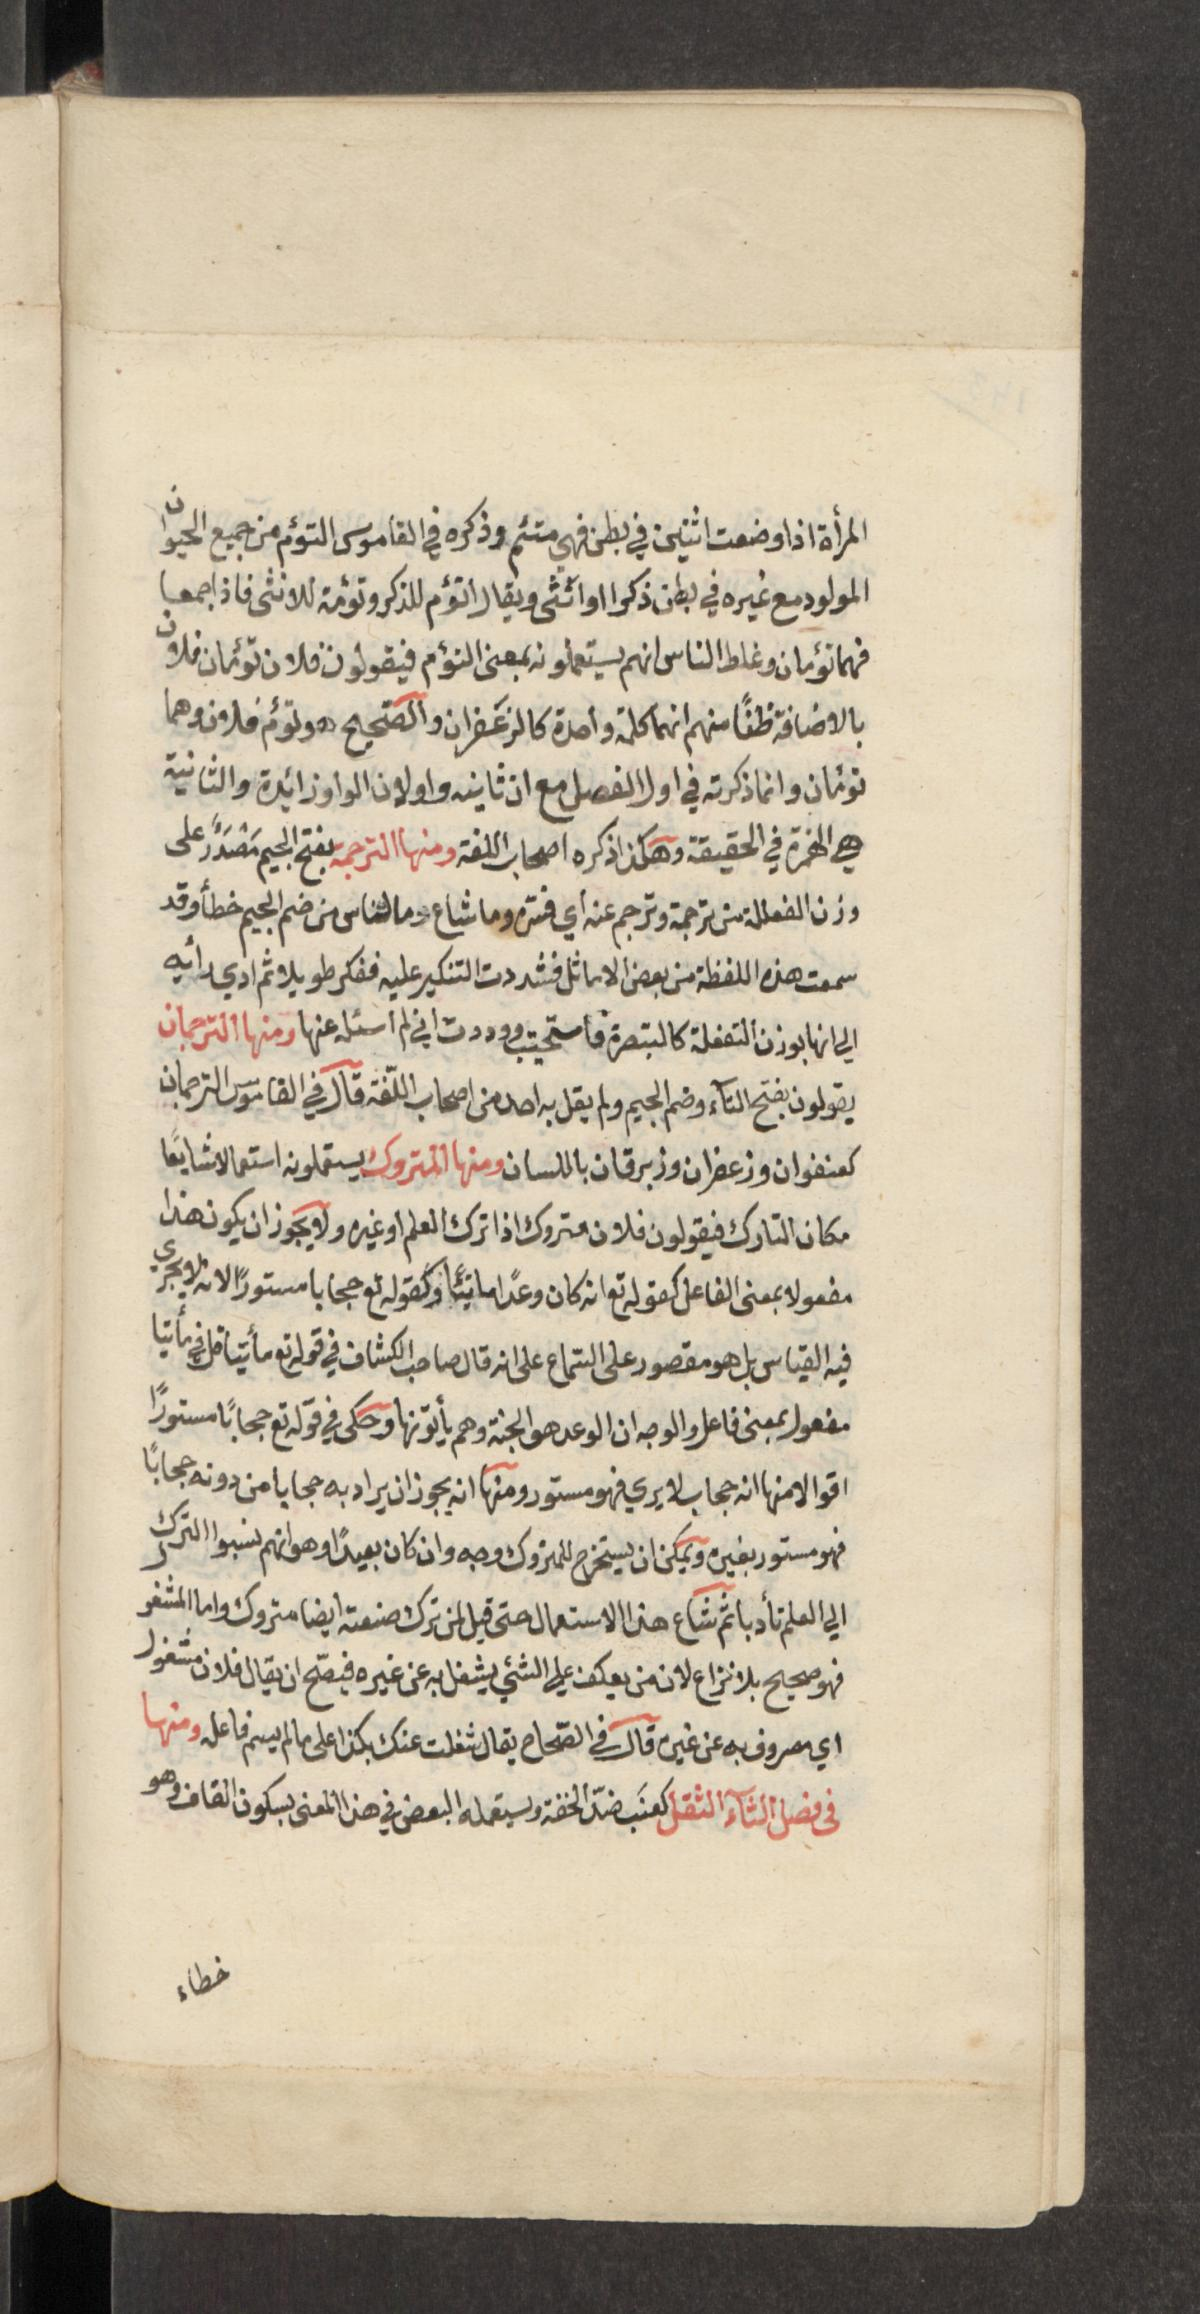 المرأة اذا وضعت اثنين في بطن فهي متئم وذكره في القاموس التوءم من جميع الحيوان
المولود مع غيره في بطن ذكرا او انثى ويقال اتؤم للذكر وتؤمة للانثى فاذا جمعا
فهما تؤمان وغلط الناس انهم يستعملونه بمعنى التؤم فيقولون فلان تؤمان فلان
بالاضافة ظنًا منهم انهما كلمة واحدة كالزعفران والصحيح وتوئم فلان وهما
توئمان وانما ذكرته في اول الفصل مع ان ثانيه واو لان الواو زائدة والثانية
هي الهمزة في الحقيقة وهكذا ذكره اصحاب اللغة ومنها الترجمة بفتح الجيم مَصْدَرٌ على
وزن الفعللة من ترجمة وترجم عنه أي فسّره وما شاع وما للناس من ضم الجيم خطأ وقد
سمعت هذه اللفظة من بعض الاماثل فشددت التنكير عليه ففكر طويلا ثم ادي رأيه
الي انها بوزن التفعلة كالتبصرة فاستحييت ووددت اني لم اسئله عنها ومنها الترجمان
يقولون بفتح التاء وضم الجيم ولم يقل به احد من اصحاب اللّغة قال في القاموس الترجمان
كعنفوان وزعفران وزبرقان باللسان ومنها المتروك يستعملونه استعمالا شايعًا
مكان التارك فيقولون فلان متروك اذا ترك العلم او غيره ولا يجوز ان يكون هذا
مفعولا بمعنى الفاعل كقوله تع انه كان وعدًا ماتيًّا وكقوله تع حجابا مستورًا لانه لا يجري
فيه القياس بل هو مقصور على السّماع على انه قال صاحب الكشاف في قوله تع مأتيا قيل في مأتيا
مفعول بمعنى فاعل والوجه ان الوعد هو الجنة وهم يأتونها وحكى في قوله تع حجابًا مستورًا
اقوالا منها انه حجاب لا يري فهو مستور ومنها انه يجوز ان يراد به حجابا من دونه حجابًا
فهو مستور بغيره ويمكن ان يستخرج للمتروك وجه وان كان بعيدًا وهو انهم نسبوا الترك
الي العلم تأدبا ثم شاع هذا الاستعمال حتى قيل لمن ترك صنعته ايضا متروك واما المشغول
فهو صحيح بلا نزاع لان من يعكف علي الشئي يشغل به عن غيره فيصّح ان يقال فلان مشغول
اي مصروف به عن غيره قال في الصّحاح يقال شغلت عنك بكذا على ما لم يسم فاعله ومنها
فى فصل الثاء الثقل كعنَب ضدّ الخفة ويستعمله البعض في هذا المعنى بسكون القاف وهو
خطاء